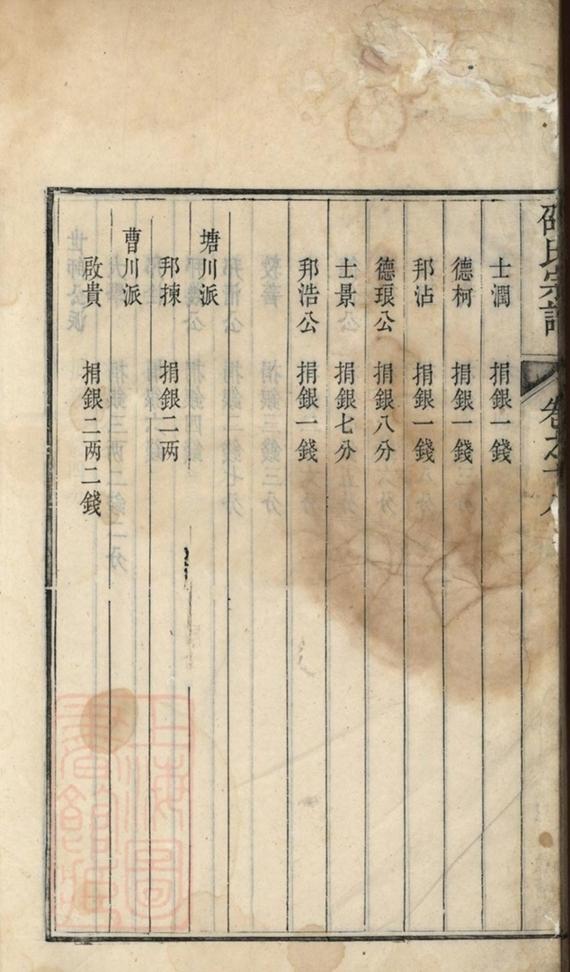 邵氏宗譜
卷之十八
士潤 捐銀一錢
德柯 捐銀一錢
邦沾 捐銀一錢
德琅公 捐銀八分
士景公 捐銀七分
邦浩公 捐銀一錢
塘川派
邦揀 捐銀二两
曹川派
啟貴 捐銀二两二錢